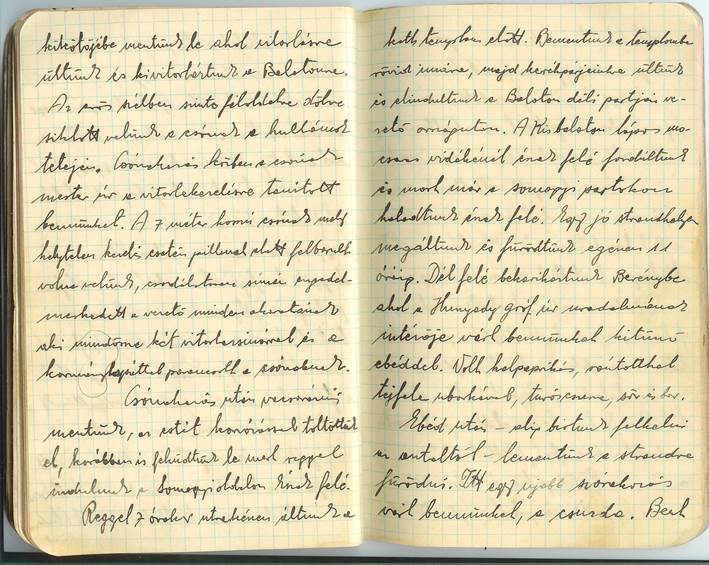 kikötőjébe mentünk le ahol vitorlásra
ültünk és kivitorláztunk a Balatonra.
Az erős szélben szinte féloldalra dőlve
siklott velünk a csónak a hullámok
tetején. Csónakázás közben a csónak
mester úr a vitorlakezelésre tanított
bennünket. A 7 méter hosszú csónak mely
helytelen kezelés esetén pillanat alatt felborult
volna velünk, csodálatosan simán engedel-
meskedett a vezető minden akaratának
aki mindössze két vitorlazsinórral és a
kormánylapáttal parancsolt a csónaknak.
Csónakázás után vacsorázni
mentünk, az estét korzózással töltöttük
el, korábban is feküdtünk le mert reggel
indulunk a Somogyi oldalon Észak felé.
Reggel 7 órakor útrakészen álltunk a
kath. templom előtt. Bementünk a templomba
rövid imára, majd kerékpárjainkra ültünk
és elindultunk a Balaton déli partján ve-
zető országúton. A Kisbalaton lápos mo-
csaras vidékénél észak felé fordultunk
és most már a somogyi partokon
haladtunk észak felé. Egy jó strandhelyen
megálltunk és fürödtünk egészen 11
óráig. Dél felé bekarikáztunk Berénybe
ahol a Hunyady gróf úr uradalmának
intézője várt bennünket kitünő
ebéddel. Volt halpaprikás, rántotthal
tejfeles uborkával, túróscsusza, sör és bor.
Ebéd után – alig birtunk felkelni
az asztaltól – lementünk a strandra
fürödni. Itt egy ujabb szórakozás
várt bennünket, a csuzda. Bent